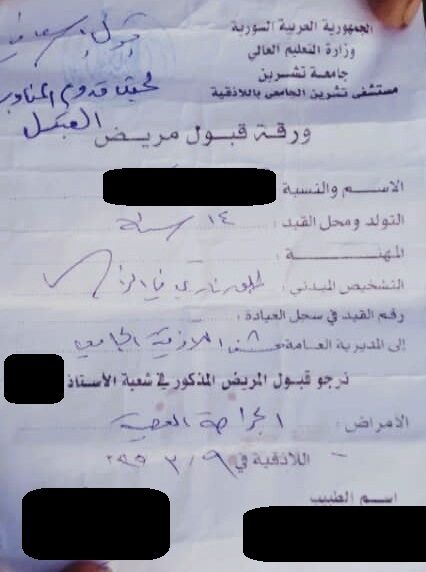 الجمهورية العربية السورية
وزارة التعليم العالي
جامعة تشرين
مستشفى تشرين الجامعي باللاذقية
قبول إسعافي
المناوب
ورقة قبول مريض
الاسم والنسبة
التولد ومحل القيد : ١٤ سنة
المهنة :
التشخيص المبدئي : طلق ناري في الرأس
رقم القيد في سجل العيادة :
إلى المديرية العامة مشفى اللاذقية الجامعي
نرجو قبول المريض المذكور في شعبة الأستاذ
الامراض : الجراحة العصبية
اللاذقية في ٩/ ٣/
اسم الطبيب